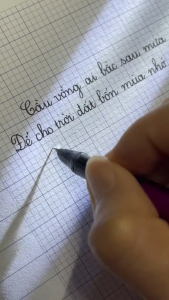 Cầu vồng ai bắc sau mưa
Để cho trời đất bốn mùa nhớ